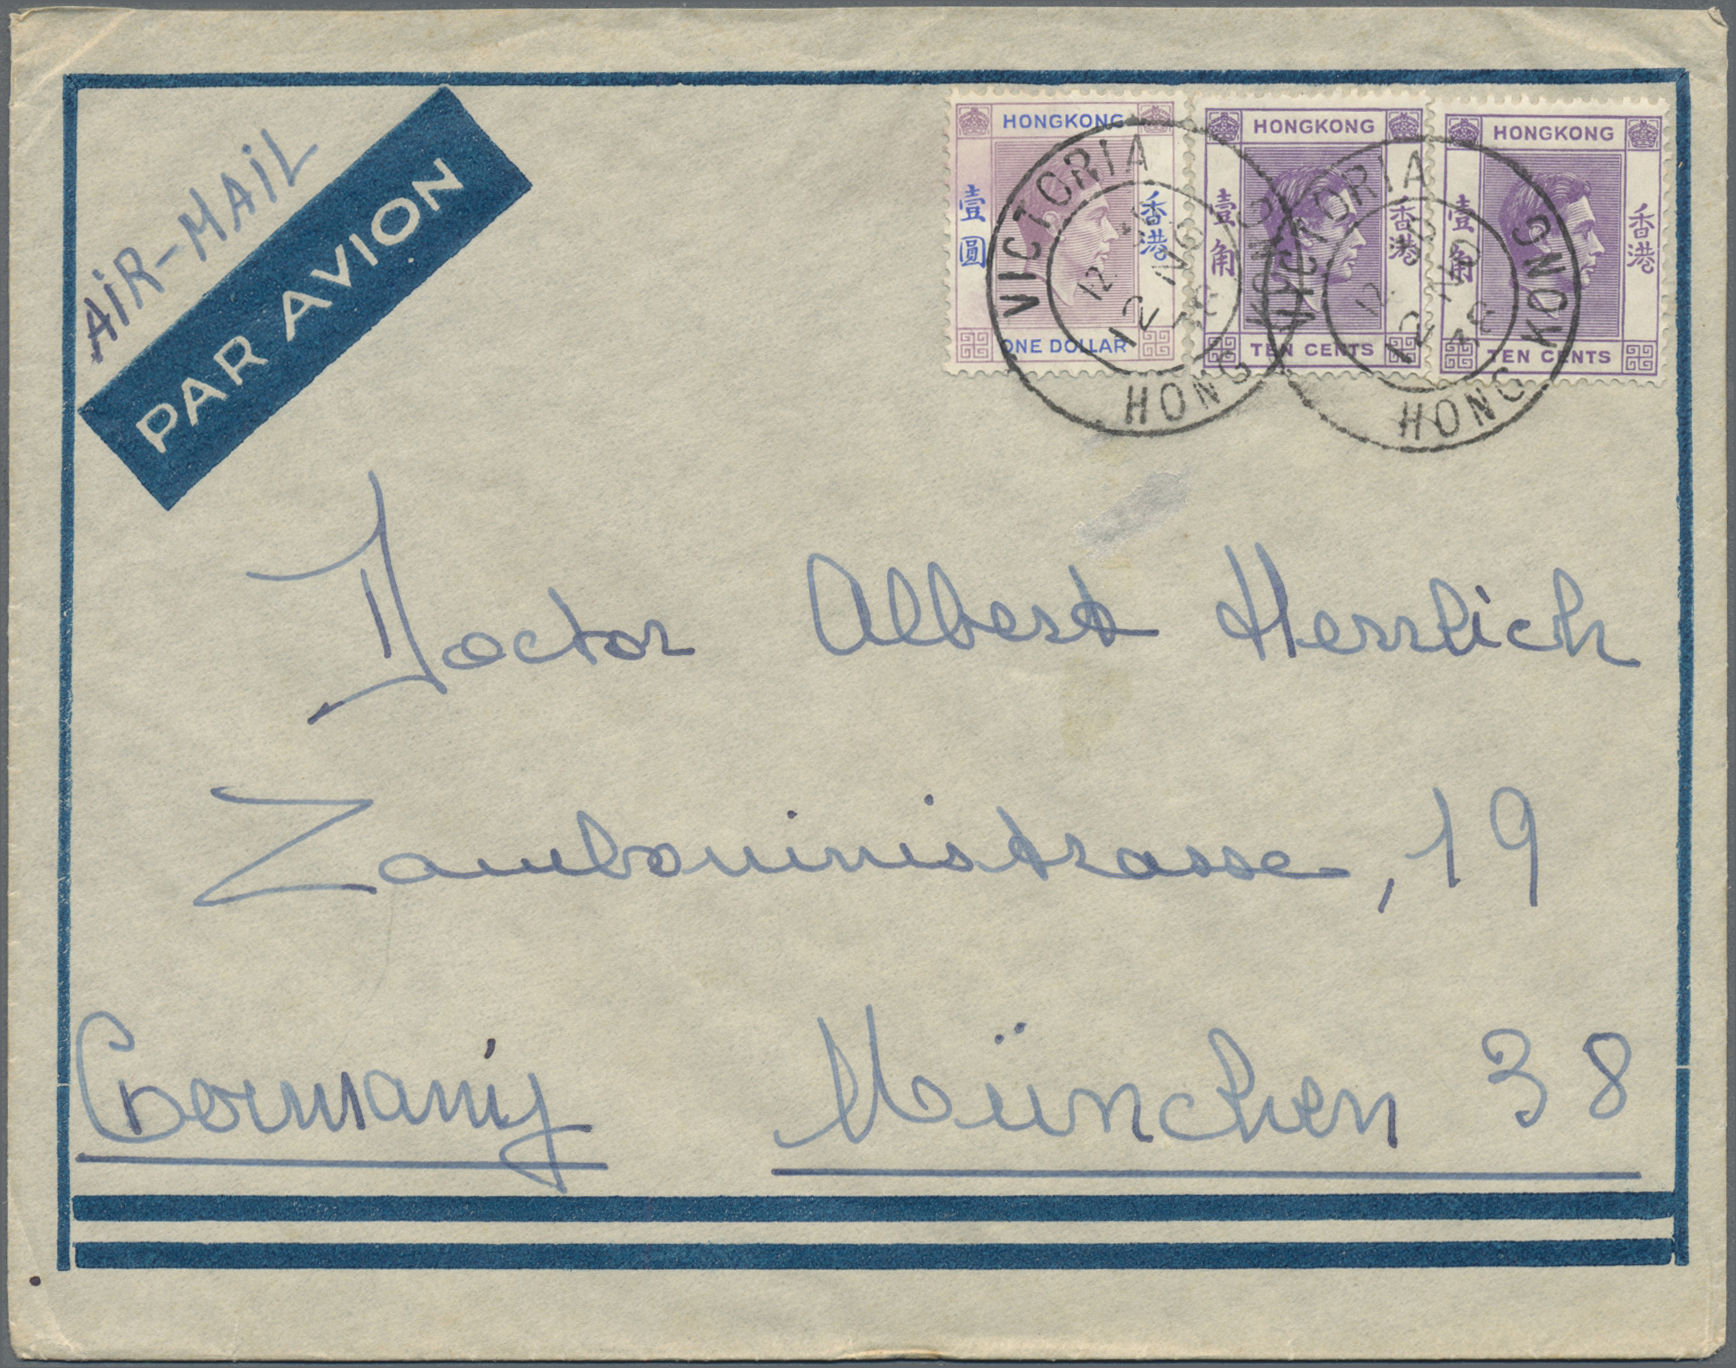 AiR-MAiL
PAR AVION
HONGKONG
壹圓
香港
ONE DOLLAR
HONGKONG
壹角
香港
TEN CENTS
HONGKONG
壹角
香港
TEN CENTS
VICTORIA
HONG KONG
VICTORIA
HONG KONG
Doctor Albert Herrlich
Zambouinistrasse, 19
Germany München 38